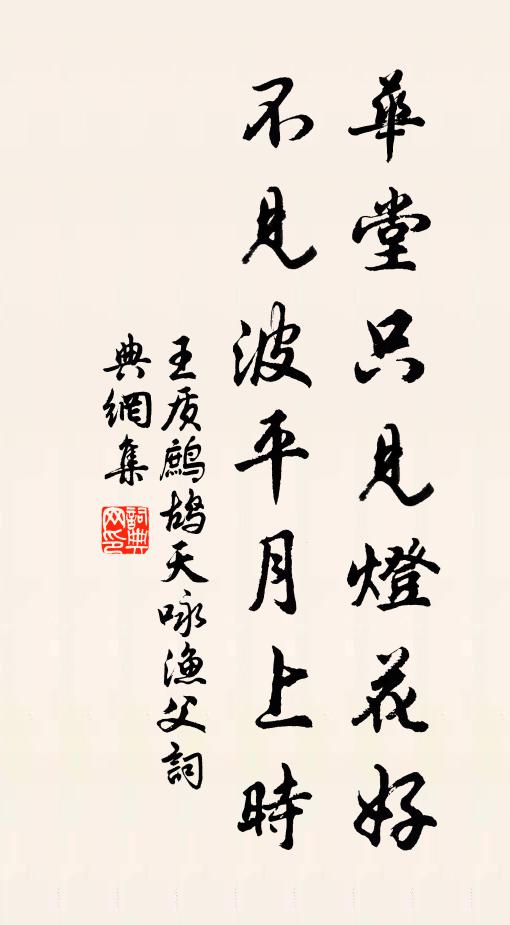 華堂只見燈花好
不見波平月上時
王质鷓鴣天咏漁父詞
典網集
詞典
网印